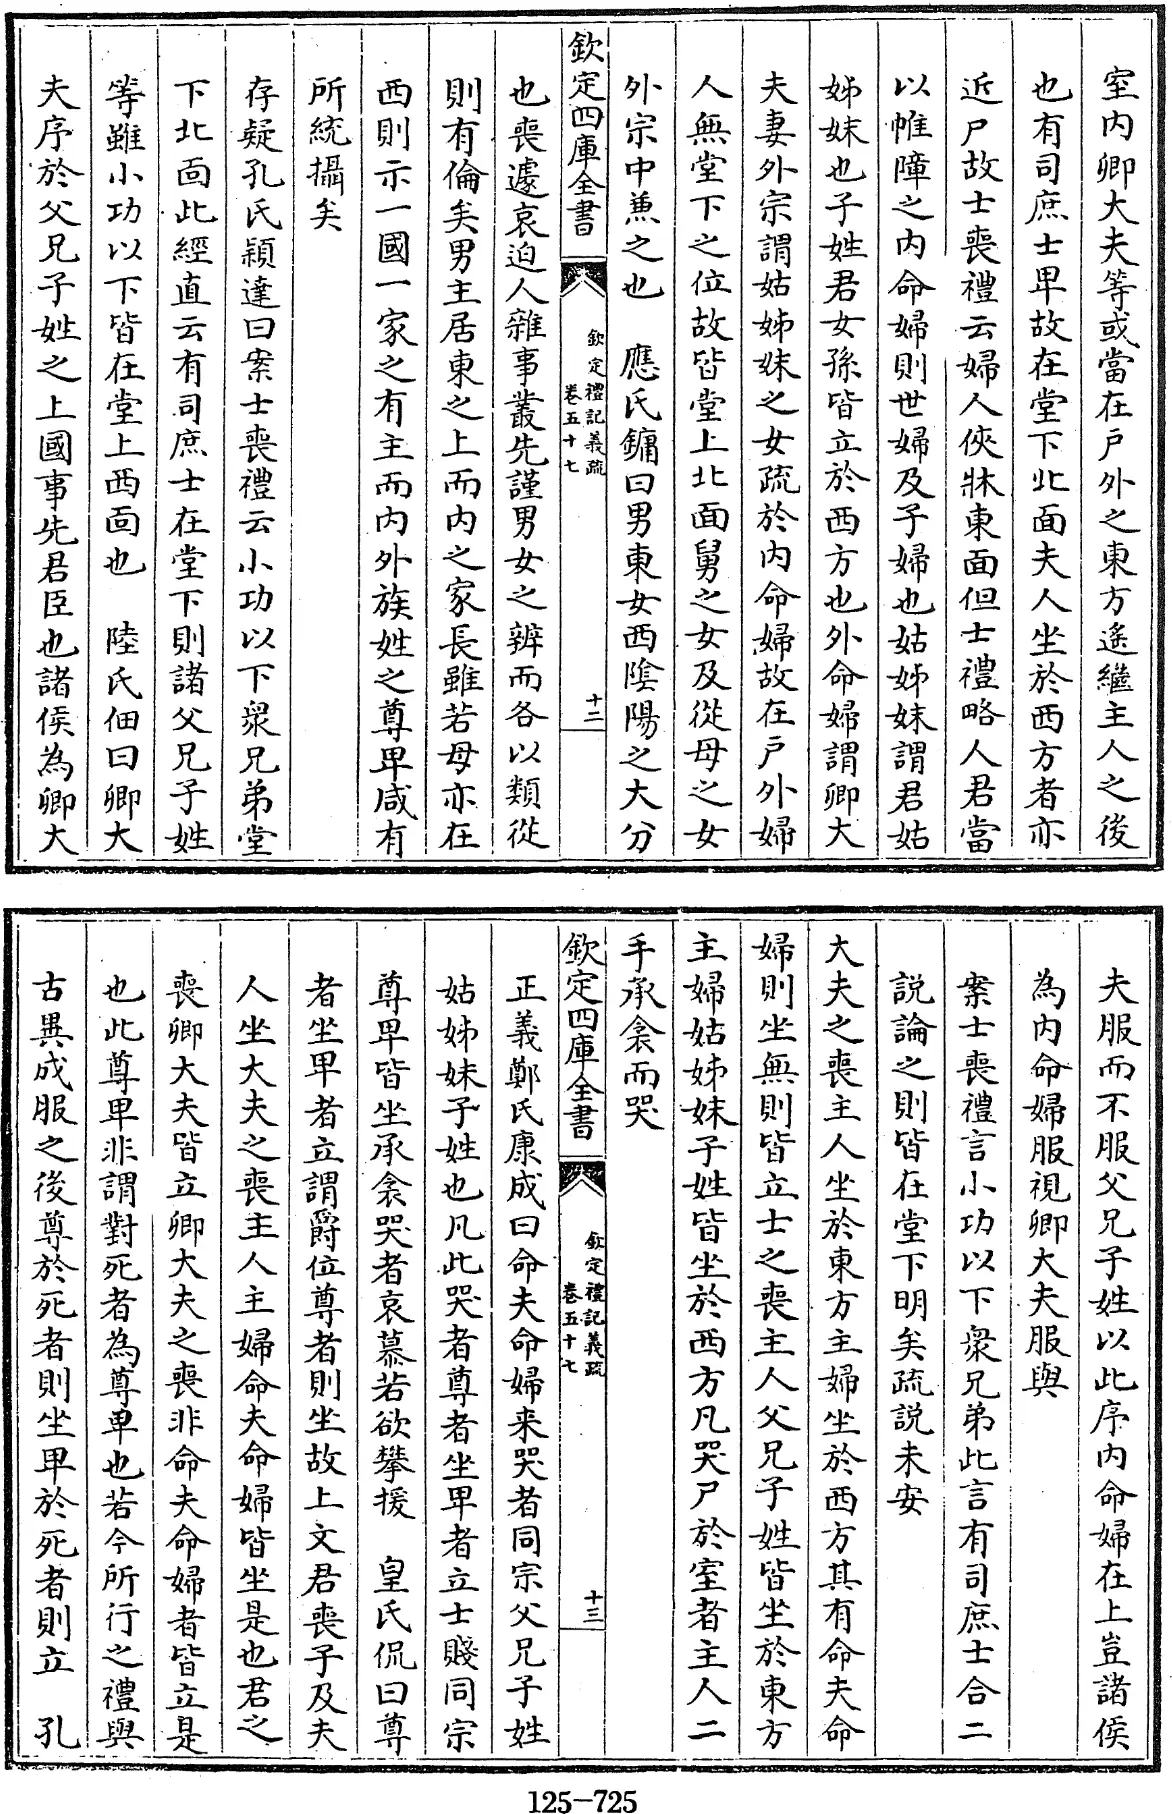 室内卿大夫等或當在戸外之東方遙繼主人之後
也有司庶士卑故在堂下北面夫人坐於西方者亦
近尸故士喪禮云婦人俠牀東面但士禮略人君當
以帷障之内命婦則世婦及子婦也姑姊妹謂君姑
姊妹也子姓君女孫皆立於西方也外命婦謂卿大
夫妻外宗謂姑姊妹之女疏於内命婦故在戸外婦
人無堂下之位故皆堂上北面舅之女及從母之女
外宗中兼之也　應氏鏞曰男東女西陰陽之大分
欽定四庫全書
欽定禮記義疏
卷五十七
十二
也喪遽哀迫人雜事叢先謹男女之辨而各以類從
則有倫矣男主居東之上而内之家長雖若母亦在
西則示一國一家之有主而内外族姓之尊卑咸有
所統攝矣
存疑孔氏穎達曰案士喪禮云小功以下衆兄弟堂
下北面此經直云有司庶士在堂下則諸父兄子姓
等雖小功以下皆在堂上西面也　陸氏佃曰卿大
夫序於父兄子姓之上國事先君臣也諸侯為卿大
夫服而不服父兄子姓以此序内命婦在上豈諸侯
為内命婦服視卿大夫服與
案士喪禮言小功以下衆兄弟此言有司庶士合二
説論之則皆在堂下明矣疏説未安
大夫之喪主人坐於東方主婦坐於西方其有命夫命
婦則坐無則皆立士之喪主人父兄子姓皆坐於東方
主婦姑姊妹子姓皆坐於西方凡哭尸於室者主人二
手承衾而哭
欽定四庫全書
欽定禮記義疏
卷五十七
十三
正義鄭氏康成曰命夫命婦来哭者同宗父兄子姓
姑姊妹子姓也凡此哭者尊者坐卑者立士賤同宗
尊卑皆坐承衾哭者哀慕若欲攀援　皇氏侃曰尊
者坐卑者立謂爵位尊者則坐故上文君喪子及夫
人坐大夫之喪主人主婦命夫命婦皆坐是也君之
喪卿大夫皆立卿大夫之喪非命夫命婦者皆立是
也此尊卑非謂對死者為尊卑也若今所行之禮與
古異成服之後尊於死者則坐卑於死者則立　孔
125-725